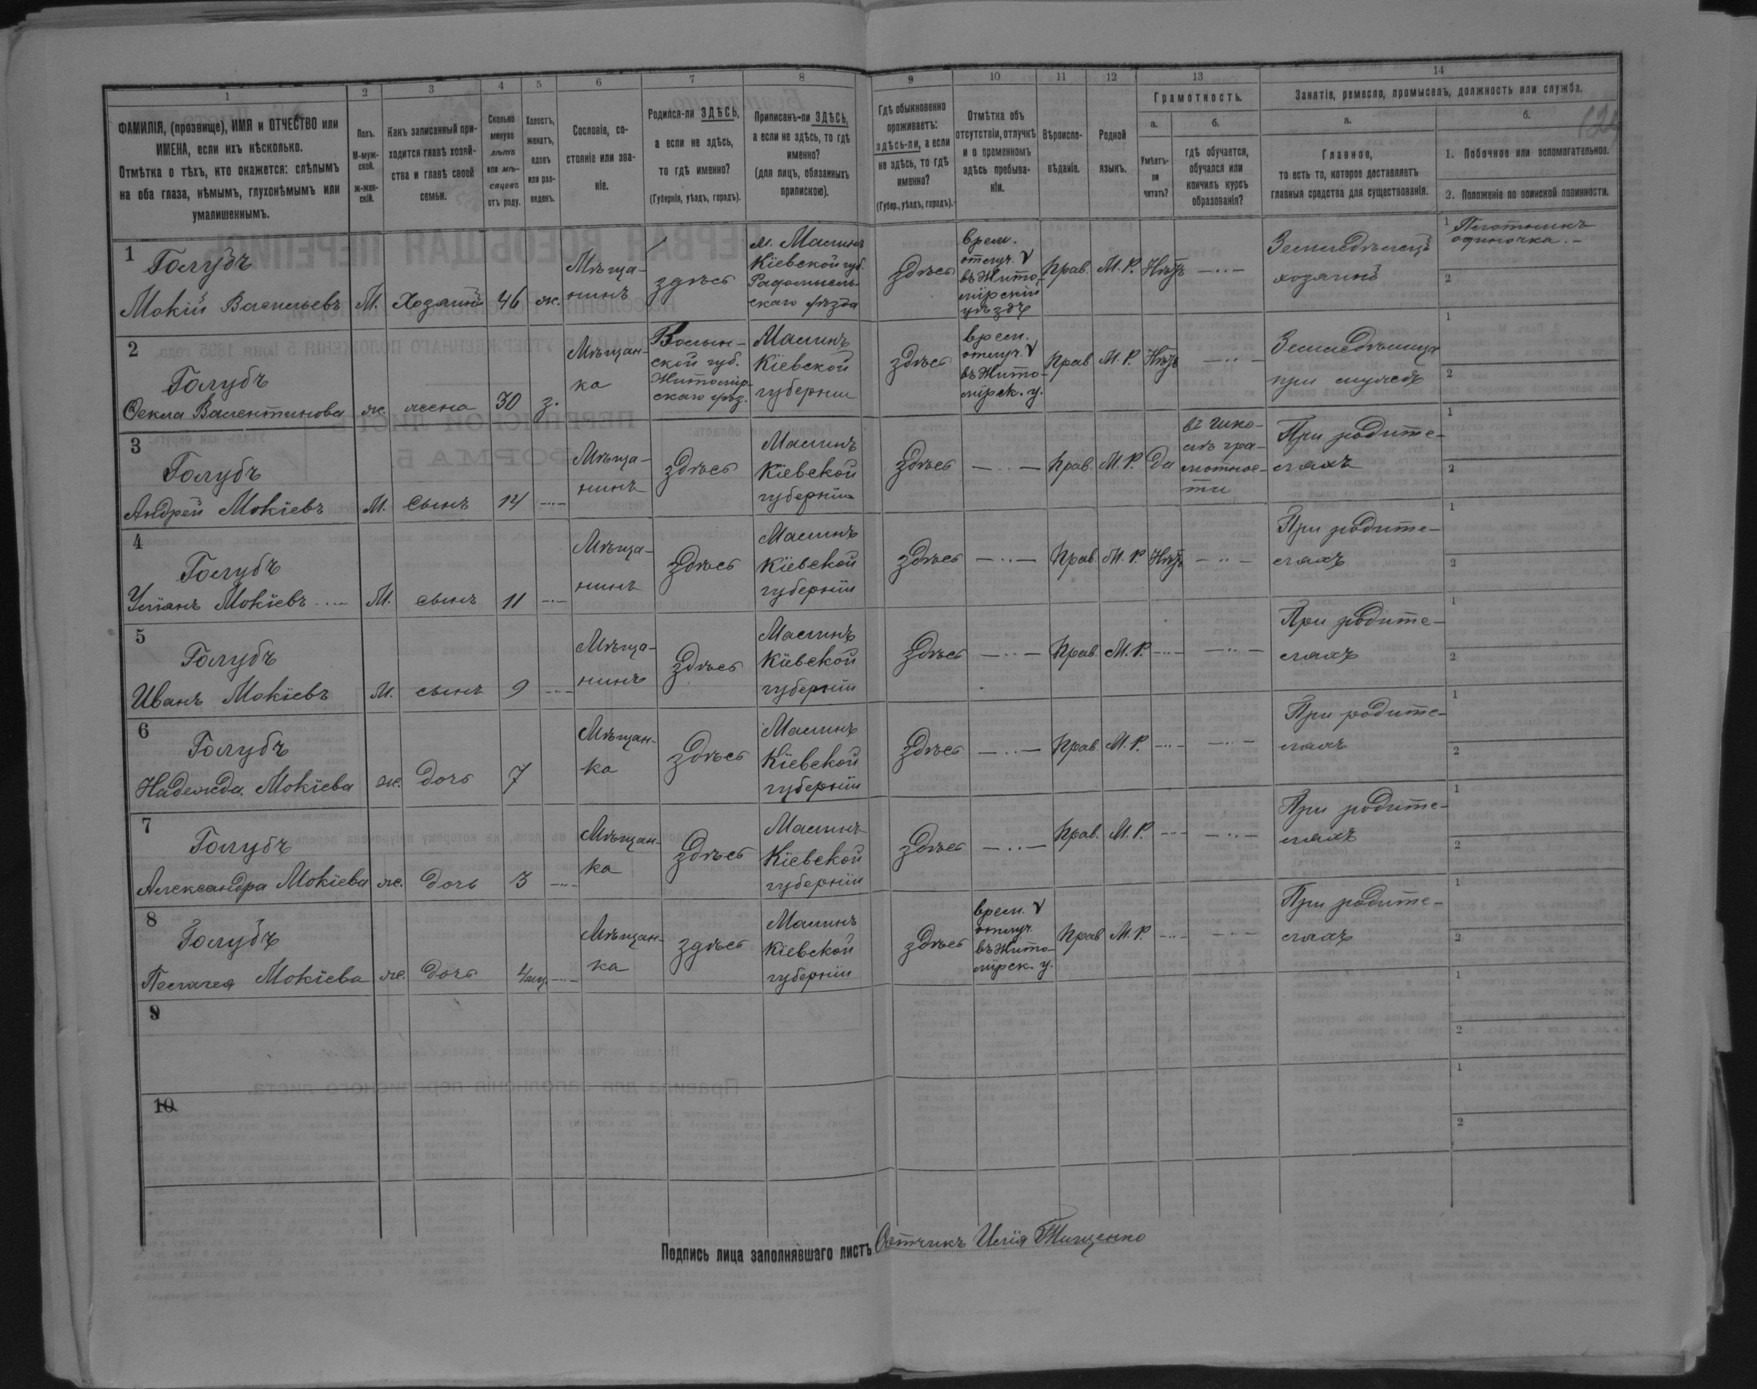 1 2 3 4 5 6 7 8 9 10 11 12 13 14
ФАМИЛІЯ, (прозвище), ИМЯ и ОТЧЕСТВО или ИМЕНА, если ихъ нѣсколько.
Отмѣтка о тѣхъ, кто окажется: слѣпымъ на оба глаза, нѣмымъ, глухонѣмымъ или умалишеннымъ.
Полъ. М-мужской. ж-женскій.
Какъ записанный приходится главѣ хозяйства и главѣ своей семьи.
Сколько минуло лѣтъ или мѣсяцевъ отъ роду.
Холостъ, женатъ, вдовъ или разведенъ.
Сословіе, состояніе или званіе.
Родился-ли ЗДѢСЬ, а если не здѣсь, то гдѣ именно? (Губернія, уѣздъ, городъ).
Приписанъ-ли ЗДѢСЬ, а если не здѣсь, то гдѣ именно? (для лицъ, обязанныхъ припискою).
Гдѣ обыкновенно проживаетъ: здѣсь-ли, а если не здѣсь, то гдѣ именно? (Губер., уѣздъ, городъ).
Отмѣтка объ отсутствіи, отлучкѣ и о временномъ здѣсь пребываніи.
Вѣроисповѣданіе.
Родной языкъ.
Грамотность.
а. Умѣетъ-ли читать?
б. гдѣ обучается, обучался или кончилъ курсъ образованія?
Занятія, ремесло, промыселъ, должность или служба.
а. Главное, то есть то, которое доставляетъ главныя средства для существованія.
б.
1. Побочное или вспомогательное.
2. Положеніе по воинской повинности.
1 Голубъ Мокій Васильевъ М. Хозяинъ 46 ж. Мѣщанинъ здѣсь м. Малинъ Кіевской губ. Радомысльскаго уѣзда здѣсь врем. отлуч. V въ Житомірскій уѣздъ Прав. М.Р. Нѣтъ — .. — Земледѣлецъ хозяинъ 1 Плотникъ одиночка. — 2
2 Голубъ Ѳекла Валентинова ж. жена 30 з. Мѣщанка Волынской губ. Житомірскаго уѣз. Малинъ Кіевской губерніи здѣсь врем. отлуч. V въ Житомірск. у. Прав М.Р. Нѣтъ — .. — Земледѣлица при мужѣ 1 2
3 Голубъ Андрей Мокіевъ М. сынъ 14 Мѣщанинъ здѣсь Малинъ Кіевской губерніи здѣсь — .. — Прав. М.Р. Да въ школѣ грамотности При родителяхъ 1 2
4 Голубъ Уліанъ Мокіевъ М. сынъ 11 Мѣщанинъ здѣсь Малинъ Кіевской губерніи здѣсь — .. — Прав. М.Р. Нѣтъ — .. — При родителяхъ 1 2
5 Голубъ Иванъ Мокіевъ М. сынъ 9 Мѣщанинъ здѣсь Малинъ Кіевской губерніи здѣсь — .. — Прав. М.Р. — .. — При родителяхъ 1 2
6 Голубъ Надежда Мокіева ж. дочь 7 Мѣщанка здѣсь Малинъ Кіевской губерніи здѣсь — .. — Прав. М.Р. — .. — При родителяхъ 1 2
7 Голубъ Александра Мокіева ж. дочь 3 Мѣщанка здѣсь Малинъ Кіевской губерніи здѣсь — .. — Прав. М.Р. — .. — При родителяхъ 1 2
8 Голубъ Пелагея Мокіева ж. дочь Мѣщанка здѣсь Малинъ Кіевской губерніи здѣсь врем. V отлуч. въ Житомірск. у. Прав М.Р. — .. — При родителяхъ 1 2
9 1 2
10 1 2
Подпись лица заполнявшаго листъ Счетчикъ Илія Тищенко